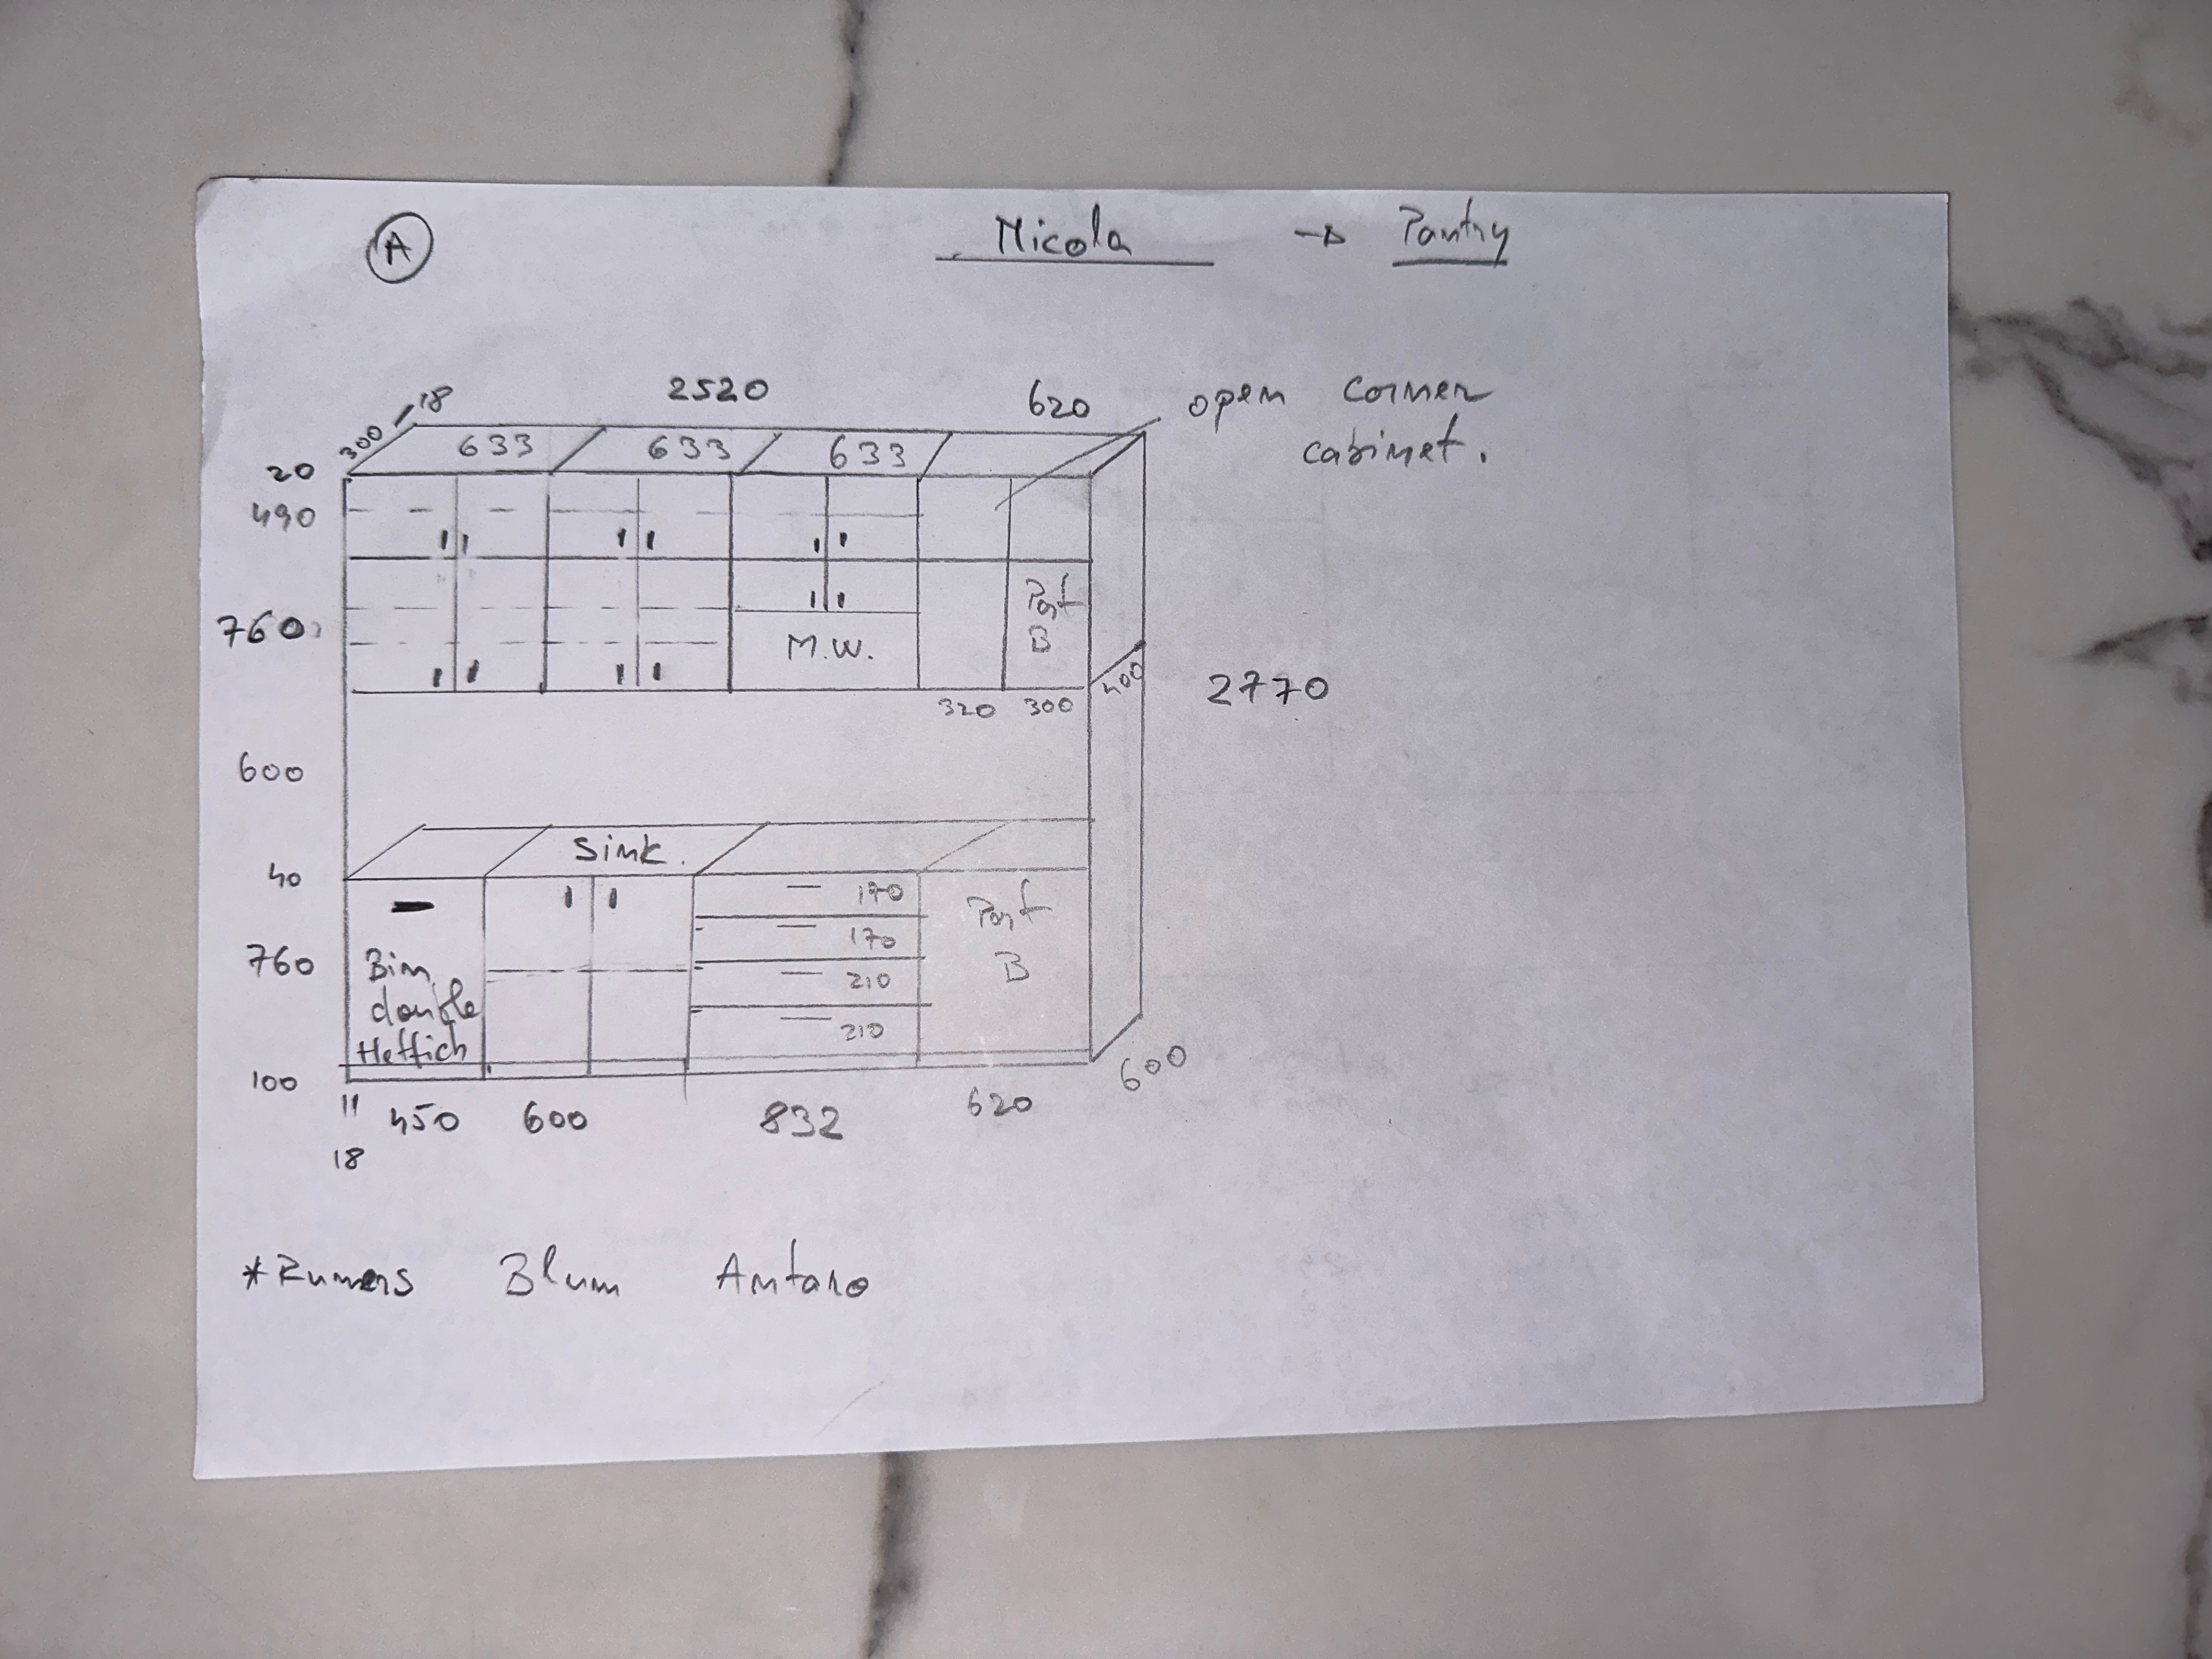 A
Nicola → Pantry
2520
18
620
open corner
cabinet.
300
633 633 633
20
490
760
Part
B
M.W.
320 300
400
2770
600
Sink.
40
170
170
210
210
Part
B
760
Bin
double
Hettich
100
600
11 450 600 832 620
18
*Runners Blum Antaro